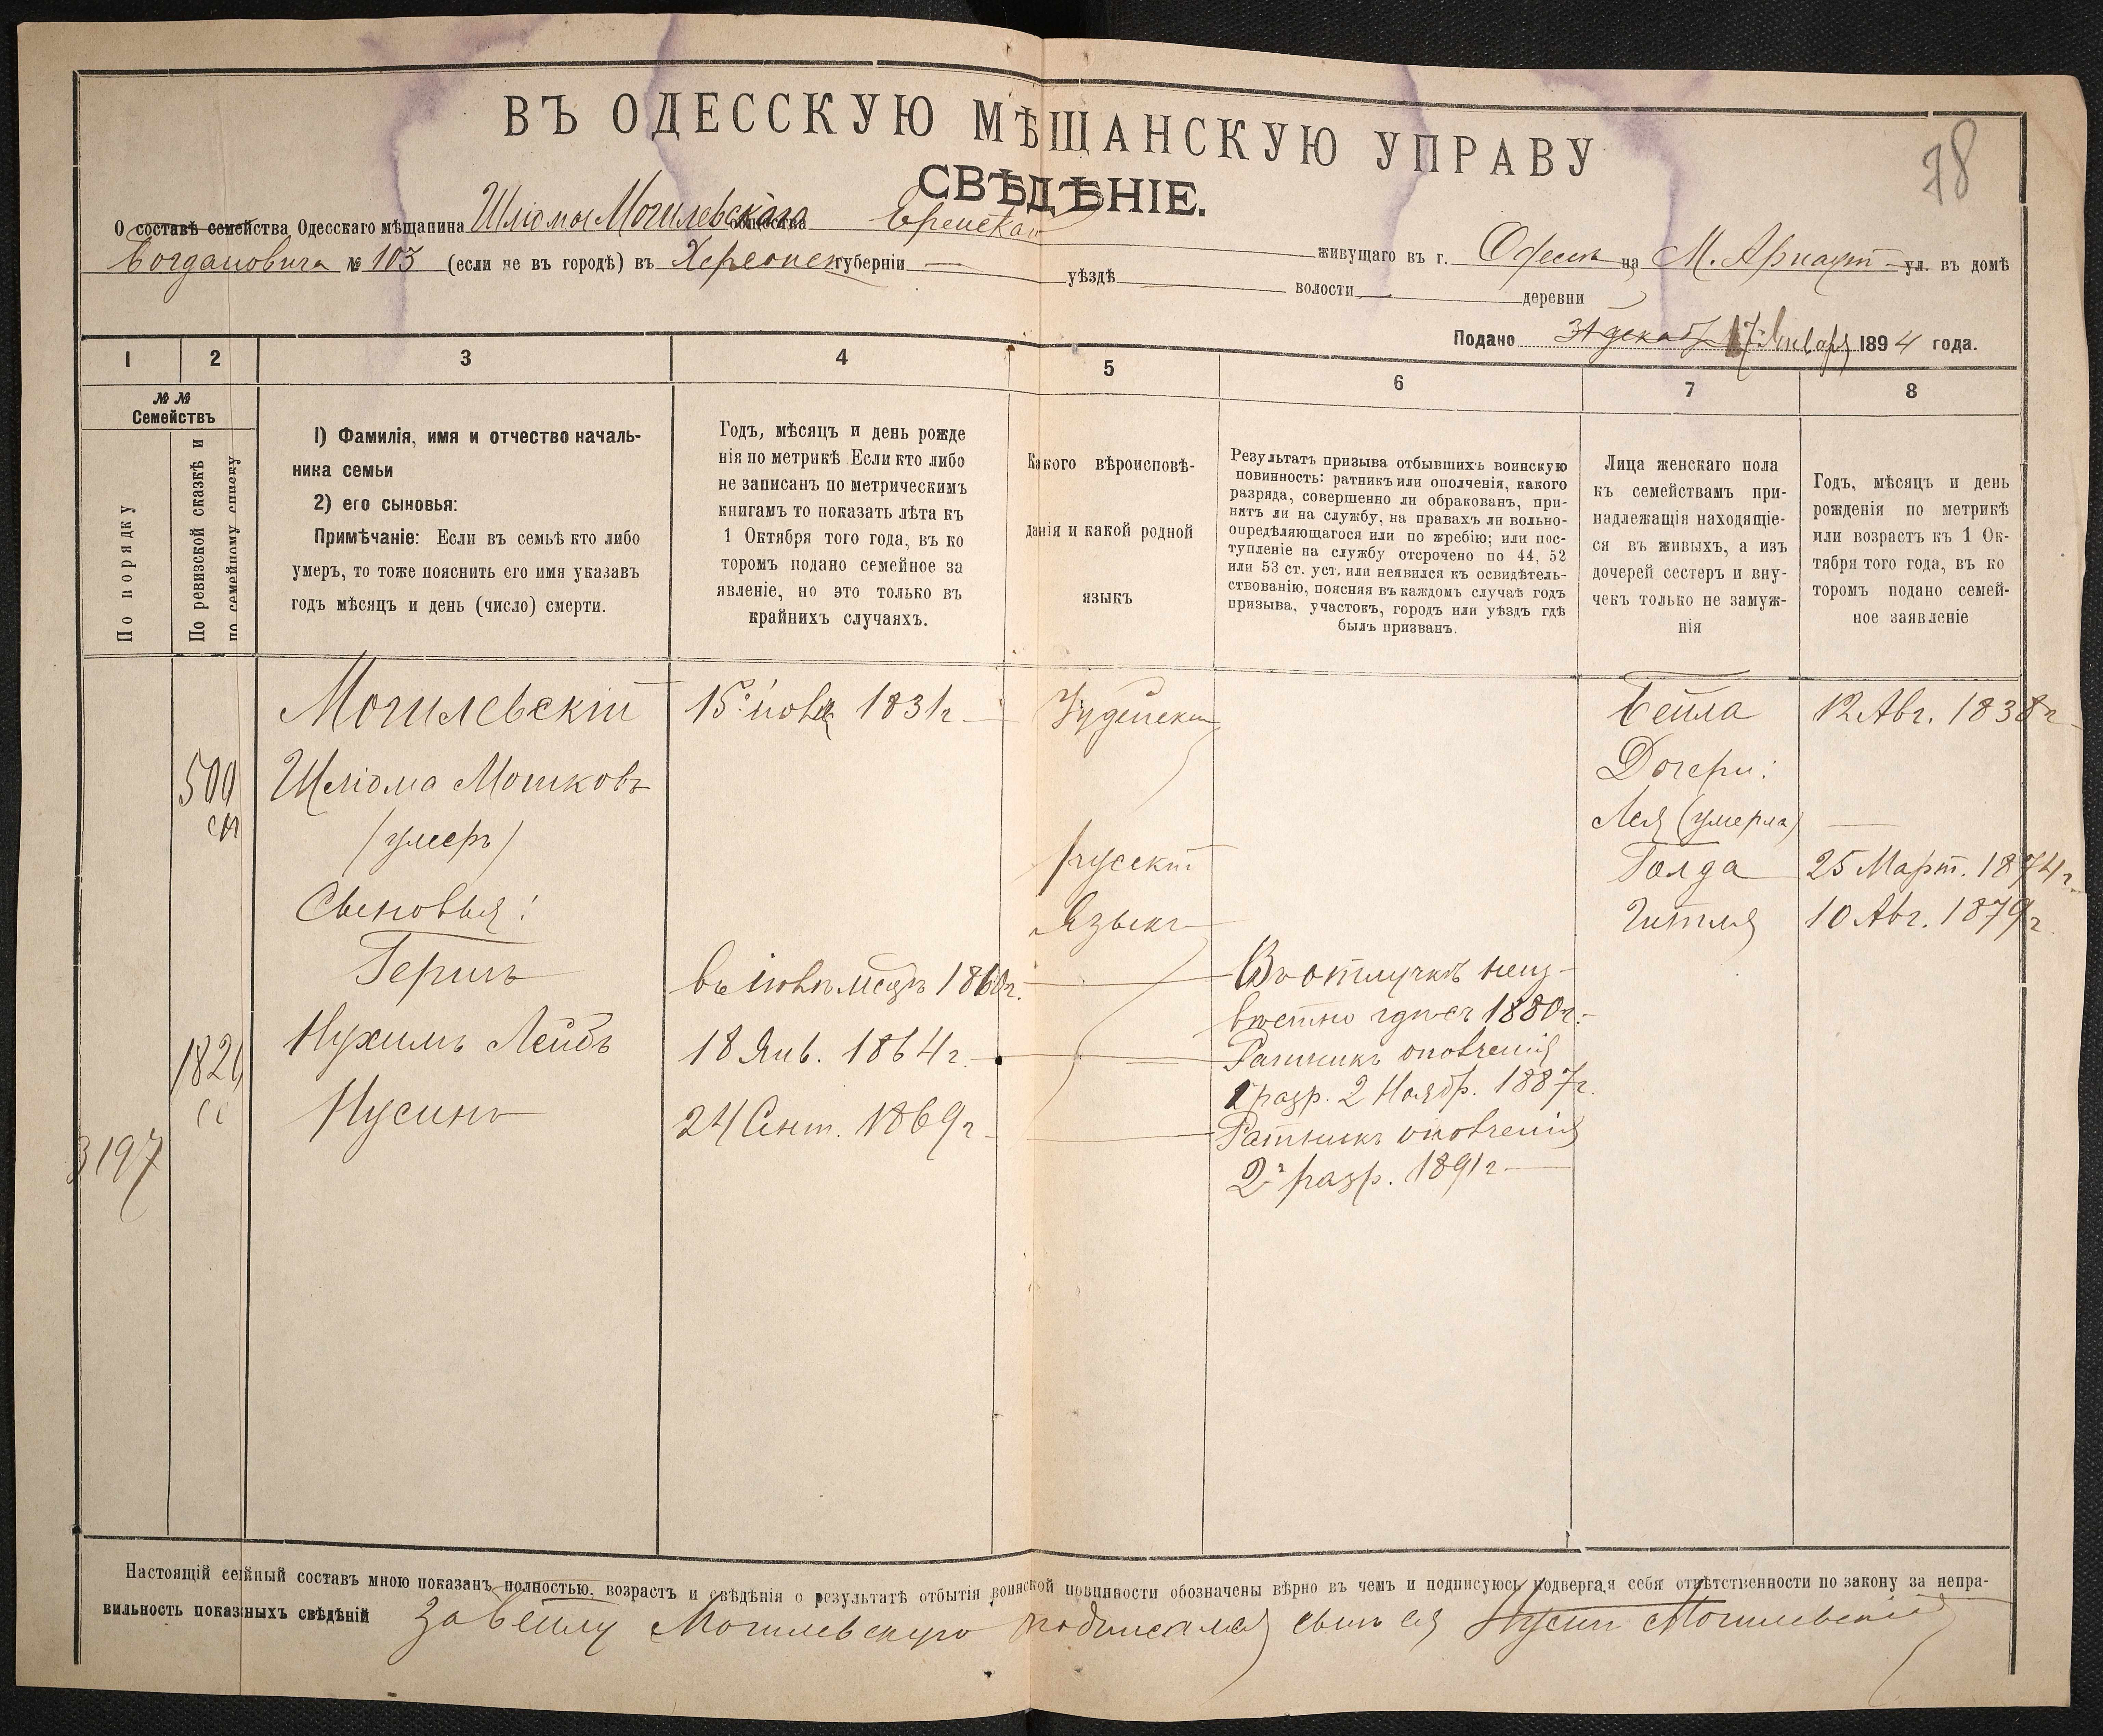 78
ВЪ ОДЕССКУЮ МѢЩАНСКУЮ УПРАВУ
СВѢДѢНІЕ.
О составѣ семейства Одесскаго мѣщанина Шліомы Могилевскаго общества Еврейскаго живущаго въ г. Одессѣ на М. Арнаут ул. въ домѣ
Богдановича № 103 (если не въ городѣ) въ Херсонск губерніи — уѣздѣ волости деревни
Подано 31 декаб 17 Января 1894 года.
1 2 3 4 5 6 7 8
№ №
Семействъ
По порядку
По ревизской сказкѣ и
по семейному списку
1) Фамилія, имя и отчество началь-
ника семьи
2) его сыновья:
Примѣчаніе: Если въ семьѣ кто либо
умеръ, то тоже пояснить его имя указавъ
годъ мѣсяцъ и день (число) смерти.
Годъ, мѣсяцъ и день рожде
нія по метрикѣ Если кто либо
не записанъ по метрическимъ
книгамъ то показать лѣта къ
1 Октября того года, въ ко
торомъ подано семейное за
явленіе, но это только въ
крайнихъ случаяхъ.
Какого вѣроисповѣ-
данія и какой родной
языкъ
Результатъ призыва отбывшихъ воинскую
повинность: ратникъ или ополченія, какого
разряда, совершенно ли обракованъ, при-
нятъ ли на службу, на правахъ ли вольно-
опредѣляющагося или по жребію; или пос-
тупленіе на службу отсрочено по 44, 52
или 53 ст. уст. или неявился къ освидѣтель-
ствованію, поясняя въ каждомъ случаѣ годъ
призыва, участокъ, городъ или уѣздъ гдѣ
былъ призванъ.
Лица женскаго пола
къ семействамъ при-
надлежащія находящіе-
ся въ живыхъ, а изъ
дочерей сестеръ и вну-
чекъ только не замуж-
нія
Годъ, мѣсяцъ и день
рожденія по метрикѣ
или возрастъ къ 1 Ок-
тября того года, въ ко
торомъ подано семей-
ное заявленіе
Могилевскій 15 1831 г. Іудейски Бейла 12 Авг. 1838 г
500 Шліома Мошковъ Дочери:
/умеръ/ Лея (умерла) —
русскій Голда 25 Март. 1874 г.
Сыновья: Языкъ Гитля 10 Авг. 1879 г.
Гершъ въ мсцѣ Въ отлучкѣ неиз-
вѣстно гдѣ съ 1880 г.
1821 Нухимъ Лейбъ 18 Янв. 1864 г. Ратникъ ополченія
1 разр. 2 Ноябр. 1887 г.
Нусинъ 24 Сент. 1869 г. Ратникъ ополченія
3197 2 разр. 1891 г
Настоящій семейный составъ мною показанъ полностью, возрастъ и свѣдѣнія о результатѣ отбытія воинской повинности обозначены вѣрно въ чемъ и подписуюсь подвергая себя отвѣтственности по закону за непра-
вильность показанныхъ свѣдѣній За Бейлу Могилевскую подписался сынъ ея Нусин Могилевскій